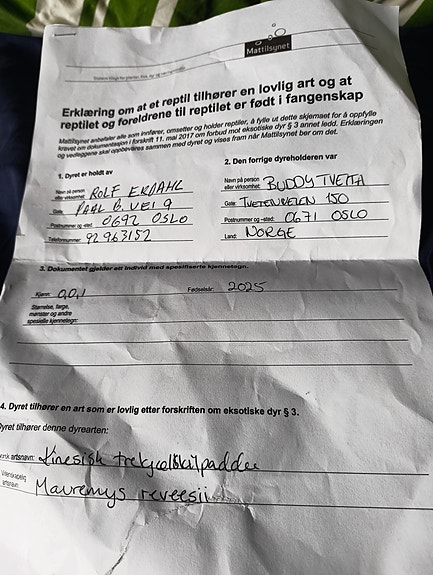 Mattilsynet
Erklæring om at et reptil tilhører en lovlig art og at
reptilet og foreldrene til reptilet er født i fangenskap
Mattilsynet anbefaler alle som innfører, omsetter og holder reptiler, å fylle ut dette skjemaet for å oppfylle
krevet om dokumentasjon i forskrift 11. mai 2017 om forbud mot eksotiske dyr § 3 annet ledd. Erklæringen
og vedleggene skal oppbevares sammen med dyret og vises fram når Mattilsynet ber om det.
1. Dyret er holdt av
Navn på person
eller virksomhet: ROLF EKDAHL
Gate: PAAL B. VEI 9
Postnummer og -sted: 0692 OSLO
Telefonnummer: 92963152
2. Den forrige dyreholderen var
Navn på person
eller virksomhet: BUDDY TVEITA
Gate: TVETENVEIEN 150
Postnummer og -sted: 0671 OSLO
Land: NORGE
3. Dokumentet gjelder ett individ med spesifiserte kjennetegn.
Kjønn: 0,0,1 Fødselsår: 2025
Størrelse, farge,
mønster og andre
spesielle kjennetegn:
4. Dyret tilhører en art som er lovlig etter forskriften om eksotiske dyr § 3.
Dyret tilhører denne dyrearten:
artsnavn: Kinesisk trekjølskilpadde
Vitenskapelig
artsnavn: Mauremys reveesii